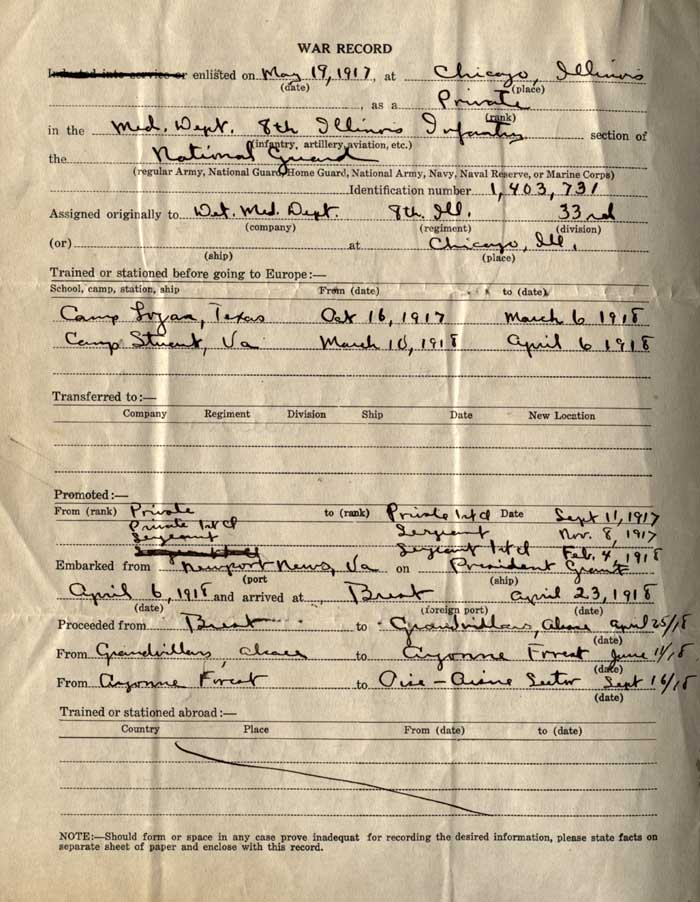 WAR RECORD
Inducted into service or enlisted on May 19, 1917, at Chicago, Illinois
(date) (place)
, as a Private
(rank)
in the Med. Dept. 8th Illinois Infantry section of
(infantry, artillery, aviation, etc.)
the National Guard
(regular Army, National Guard, Home Guard, National Army, Navy, Naval Reserve, or Marine Corps)
Identification number 1,403,731
Assigned originally to Det. Med. Dept. 8th. Ill. 33rd
(company) (regiment) (division)
(or) at Chicago, Ill.
(ship) (place)
Trained or stationed before going to Europe:—
School, camp, station, ship From (date) to (date)
Camp Logan, Texas Oct 16, 1917 March 6 1918
Camp Stuart, Va March 10, 1918 April 6 1918
Transferred to:—
Company Regiment Division Ship Date New Location
Promoted:—
From (rank) Private to (rank) Private 1st cl Date Sept 11, 1917
Private 1st cl Sergeant Nov. 8, 1917
Sergeant Sergeant 1st cl Feb. 4, 1918
Embarked from Newport News, Va on President Grant
(port (ship)
April 6, 1918 and arrived at Brest April 23, 1918
(date) (foreign port) (date)
Proceeded from Brest to Grandvillars, Alsace April 25/18
(date)
From Grandvillars, Alsace to Argonne Forest June 11/18
(date)
From Argonne Forest to Oise-Aisne Sector Sept 16/18
(date)
Trained or stationed abroad:—
Country Place From (date) to (date)
NOTE:—Should form or space in any case prove inadequat for recording the desired information, please state facts on
separate sheet of paper and enclose with this record.